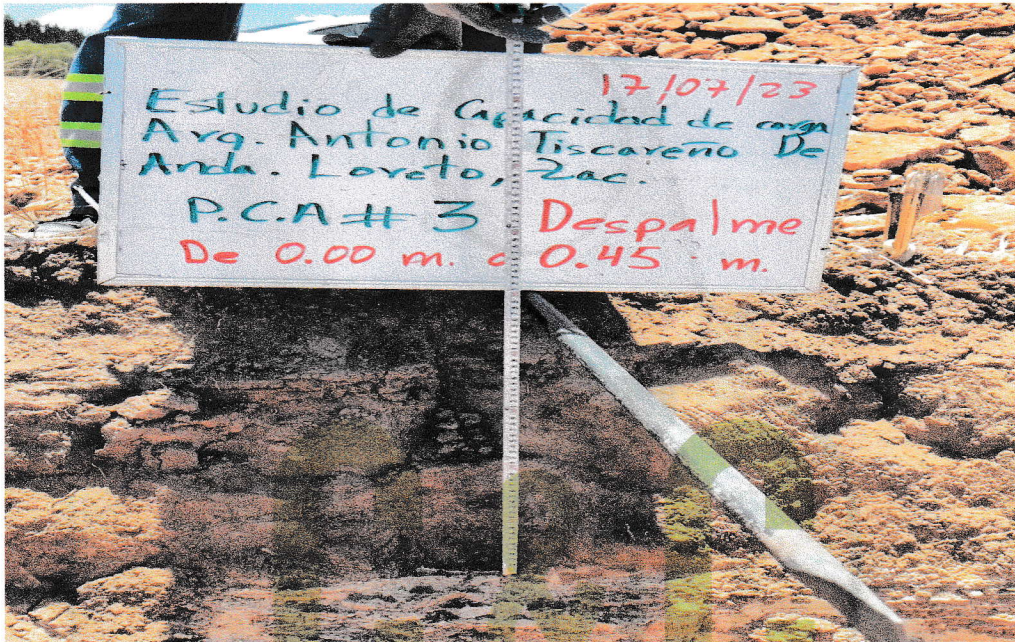 17/07/23
Estudio de Capacidad de carga
Arq. Antonio Tiscareño De
Anda. Loreto, Zac.
P.C.A # 3 Despalme
De 0.00 m. a 0.45 m.